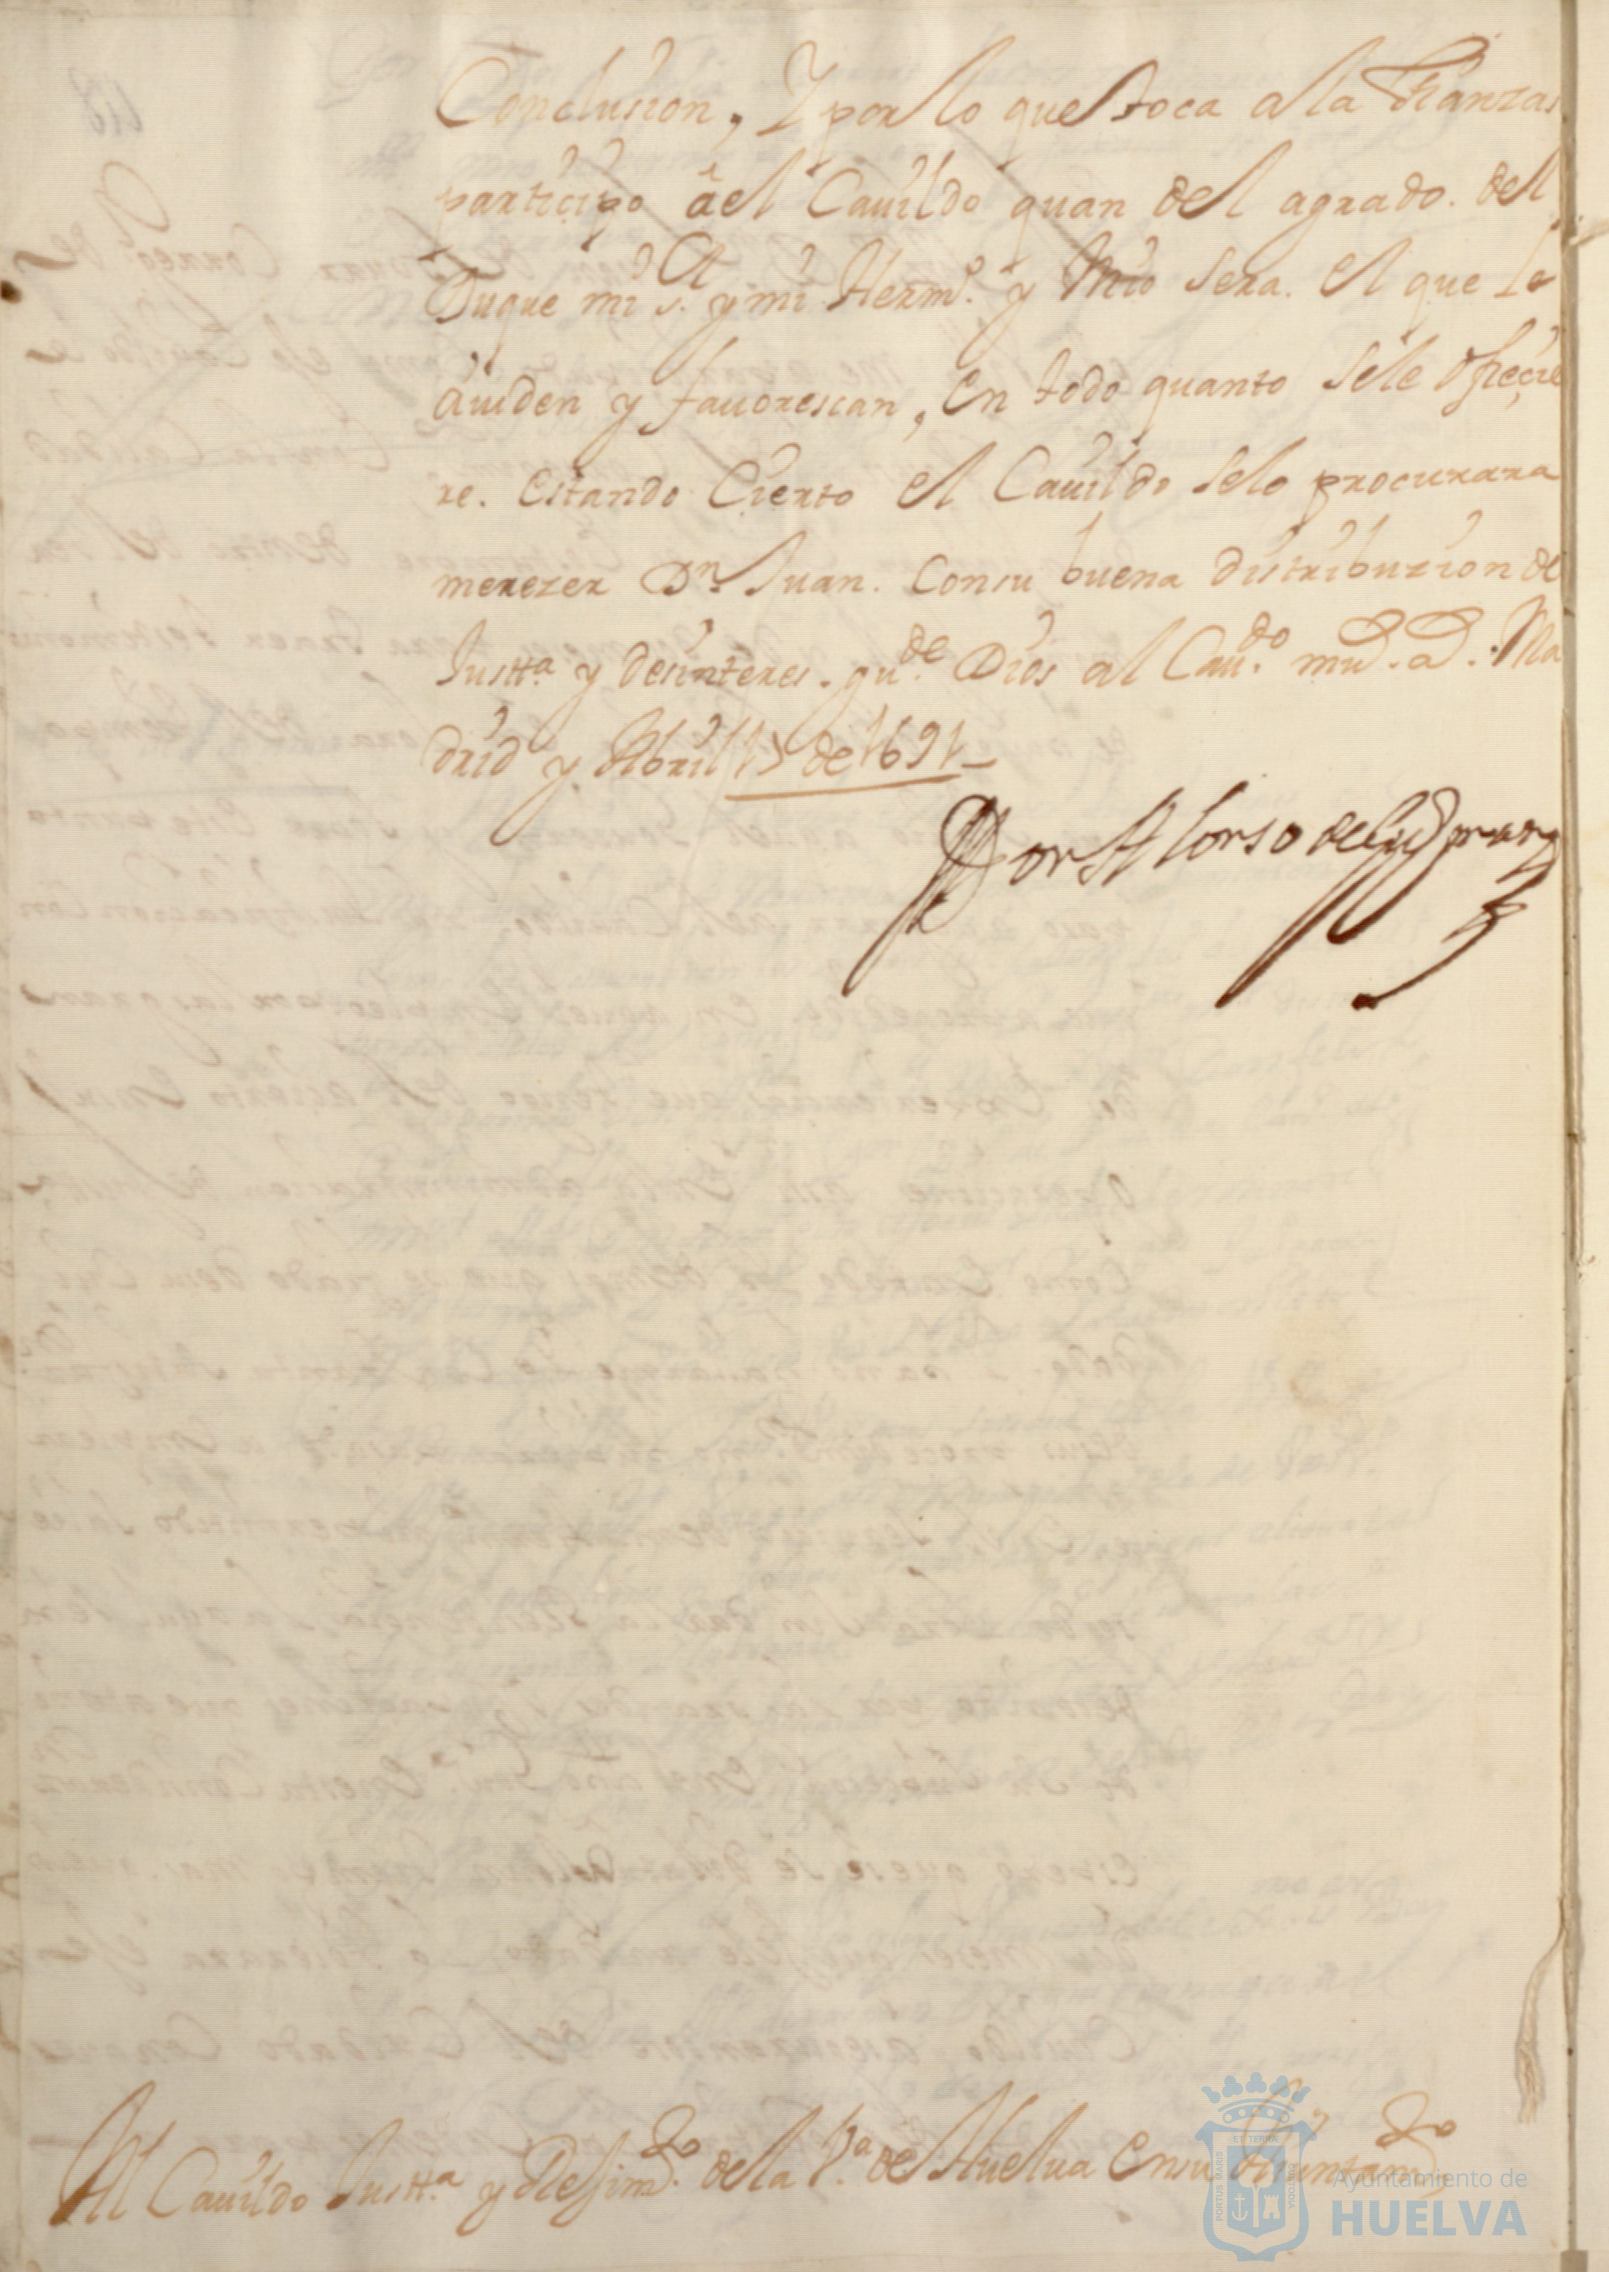 Conclusion, Y por lo que toca a la fianzas
participo âel Cauildo quan del agrado. del
Duque mi s.r y mi Herm.o y Mio sera. el que le
aiuden y fauorescan, en todo quanto sele ofrecie
re. estando Cierto el Cauildo selo procurara
merezer Dn. Juan. Consu buena distribuzion de
Justt.a y desinteres. gu.de Dios al Cau.do m.s a.s. Ma
drid y Abril 15 de 1691_
Don Alonso de
Al Cauildo Justt.a y Rejim.to de la V.a de Huelua ensu Aiuntam.to
PORTUS MARIS
ET TERRAE
CUSTODIA
Ayuntamiento de
HUELVA